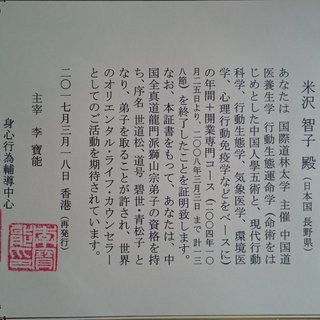 米沢 智子 殿 (日本国 長野県)
あなたは 国際道林太学 主催 中国道
医養生学 行動生態運命学 (命術をは
じめとした中国人學五術と、現代行動
科学、行動生態学、気象医学、環境医
学、心理行動免疫学などをベースに)
の年間+開業専門コース (二〇〇四年一〇
月二五日より、二〇〇八年三月三日まで 計一三
八節) を終了したことを証明致します。
なお、本証書をもって、あなたは、中
国全真道龍門派獅山宗弟子の資格を持
ち、序名 世道松一 道号 碧世(青松子) と
なり、弟子を取ることが許され、世界
のオリエンタル・ライフ・カウンセラー
としてのご活動を期待されています。
二〇一七年三月一八日 香港 (再発行)
主宰 李 寶能
身心行為輔導中心